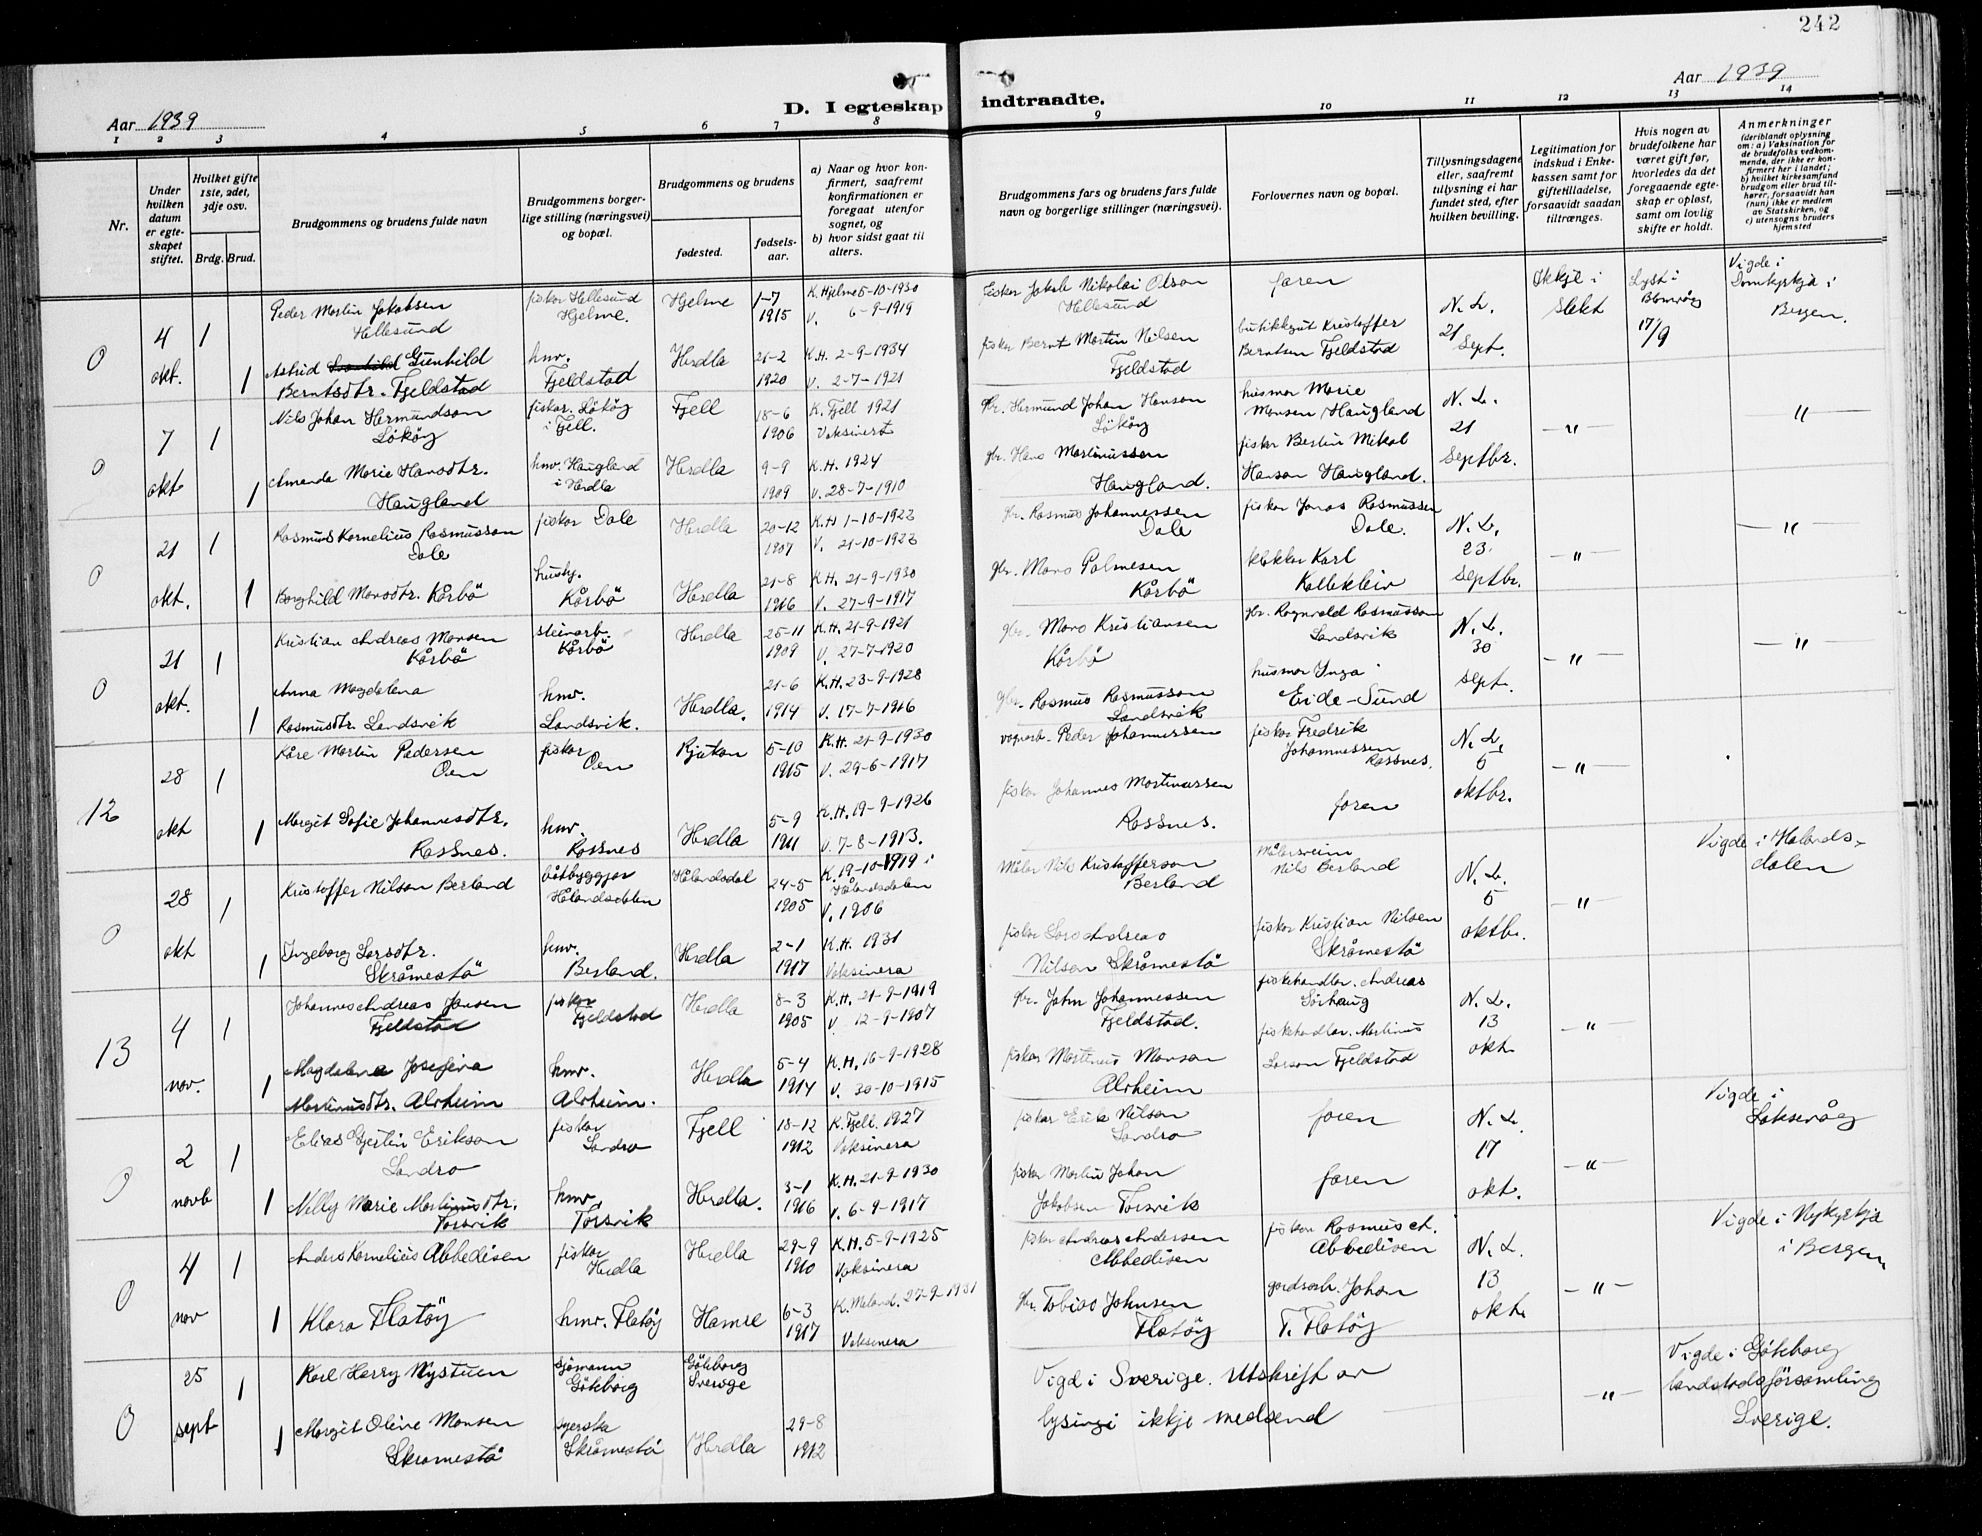 242
Aar 1939
D. I egteskap indtraadte.
Aar 1939
1 2 3 4 5 6 7 8 9 10 11 12 13 14
Nr.
Under hvilken datum er egteskapet stiftet.
Hvilket gifte 1ste, 2det, 3dje osv.
Brdg. Brud.
Brudgommens og brudens fulde navn
Brudgommens borgerlige stilling (næringsvei) og bopæl.
Brudgommens og brudens
fødested.
fødselsaar.
a) Naar og hvor konfirmert, saafremt konfirmationen er foregaat utenfor sognet, og
b) hvor sidst gaat til alters.
Brudgommens fars og brudens fars fulde navn og borgerlige stillinger (næringsvei).
Forlovernes navn og bopæl.
Tillysningsdagene eller, saafremt tillysning ei har fundet sted, efter hvilken bevilling.
Legitimation for indskud i Enkekassen samt for giftetilladelse, forsaavidt saadan tiltrænges.
Hvis nogen av brudefolkene har været gift før, hvorledes da det foregaaende egteskap er opløst, samt om lovlig skifte er holdt.
Anmerkninger (deriblandt oplysning om: a) Vaksination for de brudefolks vedkommende, der ikke er konfirmert her i landet; b) hvilket kirkesamfund brudgom eller brud tilhører, forsaavidt han (hun) ikke er medlem av Statskirken, og c) utensogns bruders hjemsted
0 4 okt. 1 Peder Martin Jakobsen Hellesund fiskar Hellesund Hjelme. Hjelme 1-7 1915 K. Hjelme 5-10-1930 V. 6-9-1919 fiskar Jakob Nikolai Olson Hellesund faren N. L. 21 Sept. Ikkje i Slekt Lyst i Blomvåg 17/9 Vigde i Domkyrkja i Bergen.
1 Astrid Gunhild Berntsdtr. Fjeldstad hmv. Fjeldstad Herdla 21-2 1920 K.H. 2-9-1934 V. 2-7-1921 fiskar Bernt Martin Nilsen Fjeldstad butikkgut Kristoffer Berntsen Fjeldstad
0 7 okt 1 Nils Johan Hermundson Lököy fiskar. Lököy i Fjell. Fjell 18-6 1906 K. Fjell 1921 Vaksinert gbr. Hermund Johan Hanson Lököy husmor Marie Monsen Haugland N. L. 21 Septbr. -"- "
1 Amanda Marie Hansdtr. Haugland hmv. Haugland i Herdla Herdla 9-9 1909 K.H. 1924 V. 28-7-1910 gbr. Hans Martinussen Haugland. fiskar Bertin Mikal Hanson Haugland.
0 21 okt. 1 Rasmus Kornelius Rasmusson Dale fiskar Dale Herdla 20-12 1907 K.H 1-10-1922 V. 21-10-1922 gbr. Rasmus Johannessen Dale fiskar Jonas Rasmussen Dale. N. L. 23. Septbr. -"- -"-
1 Borghild Monsdtr. Kårbö hushj. Kårbö Herdla 21-8 1916 K.H. 21-9-1930 V. 27-9-1917 gbr. Mons Palmesen Kårbö klokkar Karl Kallekleiv
0 21 okt. 1 Kristian Andreas Monsen Kårbö steinarb. Kårbö Herdla 25-11 1909 K.H. 21-9-1921 V. 27-7-1920 gbr. Mons Kristiansen Kårbö gbr. Rognvald Rasmusson Landsvik N. L. 30 Sept. -"- -"-
1 Anna Magdalena Rasmusdtr. Landsvik hmv. Landsvik. Herdla. 21-6 1914 K.H. 23-9-1928 V. 17-7-1916 gbr. Rasmus Rasmusson Landsvik husmor Inga Eide-Sund
12 28 okt 1 Kåre Martin Pedersen Oen fiskar Oen Rjukan 5-10 1915 K.H. 21-9-1930 V. 29-6-1917 vognarb. Peder Johannessen fiskar Fredrik Johannessen Rossnes. N. L. 5 oktbr. -"-
1 Margit Sofie Johannesdtr. Rossnes. hmv. Rossnes Herdla 5-9 1911 K.H. 19-9-1926 V. 7-8-1913. fiskar Johannes Martinussen Rossnes. faren
0 28 okt 1 Kristoffer Nilson Berland båtbyggjar Hålandsdalen Hålandsdal 24-5 1905 K. 19-10-1919 i Hålandsdalen V. 1906 Målar Nils Kristofferson Berland Målarsvein Nils Berland N. L. 5 oktbr. -"- Vigde i Hålandsdalen
1 Ingeborg Larsdtr. Skråmestö hmv. Berland. Herdla 2-1 1917 K.H. 1931 Vaksinera fiskar Lars Andreas Nilson Skråmestö fiskar Kristian Nilsen Skråmestö
13 4 nov. 1 Johannes Andreas Jonsen Fjeldstad fiskar Fjeldstad Herdla 8-3 1905 K.H. 21-9-1919 V. 12-9-1907 gbr. John Johannessen Fjeldstad. fiskehandlar. Andreas Sörhaug N. L. 13 okt. -"-
1 Magdalena Josefina Martinusdtr. Alvheim hmv. Alvheim. Herdla 5-4 1914 K.H. 16-9-1928 V. 30-10-1915 fiskar Martinus Monson Alvheim fiskehandlar. Martinus Larson Fjeldstad
0 2 novb 1 Elias Gjertin Erikson Landro fiskar Landro Fjell 18-12 1912 K. Fjell. 1927 Vaksinera fiskar Erik Nilson Landro faren N. L. 17 okt. -"- Vigde i Laksevåg
1 Nelly Marie Martinusdtr. Torsvik hmv. Torsvik Herdla. 3-1 1916 K.H. 21-9-1930 V. 6-9-1917 fiskar Martin Johan Jakobsen Torsvik faren
0 4 nov 1 Anders Kornelius Abbedisen fiskar Herdla Herdla 29-9 1910 K.H. 5-9-1925 Vaksinera fiskar Andreas Andersen Abbedisen fiskar Rasmus A. Abbedisen N. L. 13 okt. -"- Vigde i Nykyrkja i Bergen
1 Klara Flatöy hmv. Flatöy Hamre 6-3 1917 K. Meland. 27-9-1931 Vaksinera gbr. Tobias Johnsen Flatöy gardsarb. Johan T. Flatöy
0 25 sept 1 Karl Harry Nystuen Sjömann Göteborg Göteborg Sverige Vigd i Sverige. Utskrift av lysingi ikkje medsend -"- Vigde i Göteborg landstadsförsamling Sverige.
1 Margit Oline Monsen Skråmestö syerska Skråmestö Herdla 29-8 1912